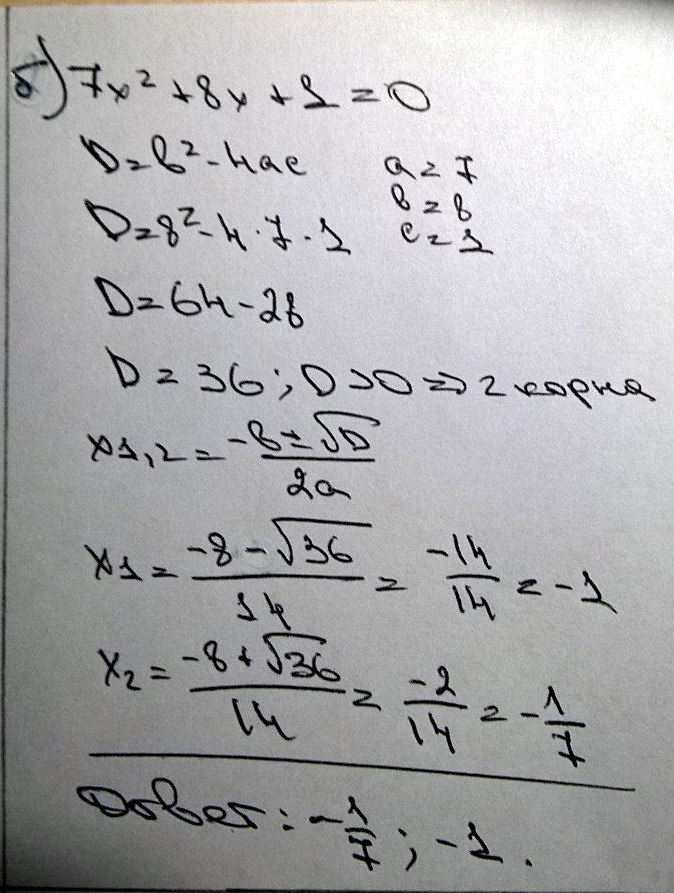 б) 7x² + 8x + 1 = 0
D = b² - 4ac   a = 7
b = 8
D = 8² - 4 · 7 · 1   c = 1
D = 64 - 28
D = 36 ; D > 0 => 2 корня
x1,2 = (-b ± √D) / 2a
x1 = (-8 - √36) / 14 = -14/14 = -1
x2 = (-8 + √36) / 14 = -2/14 = -1/7
Ответ: -1/7 ; -1.